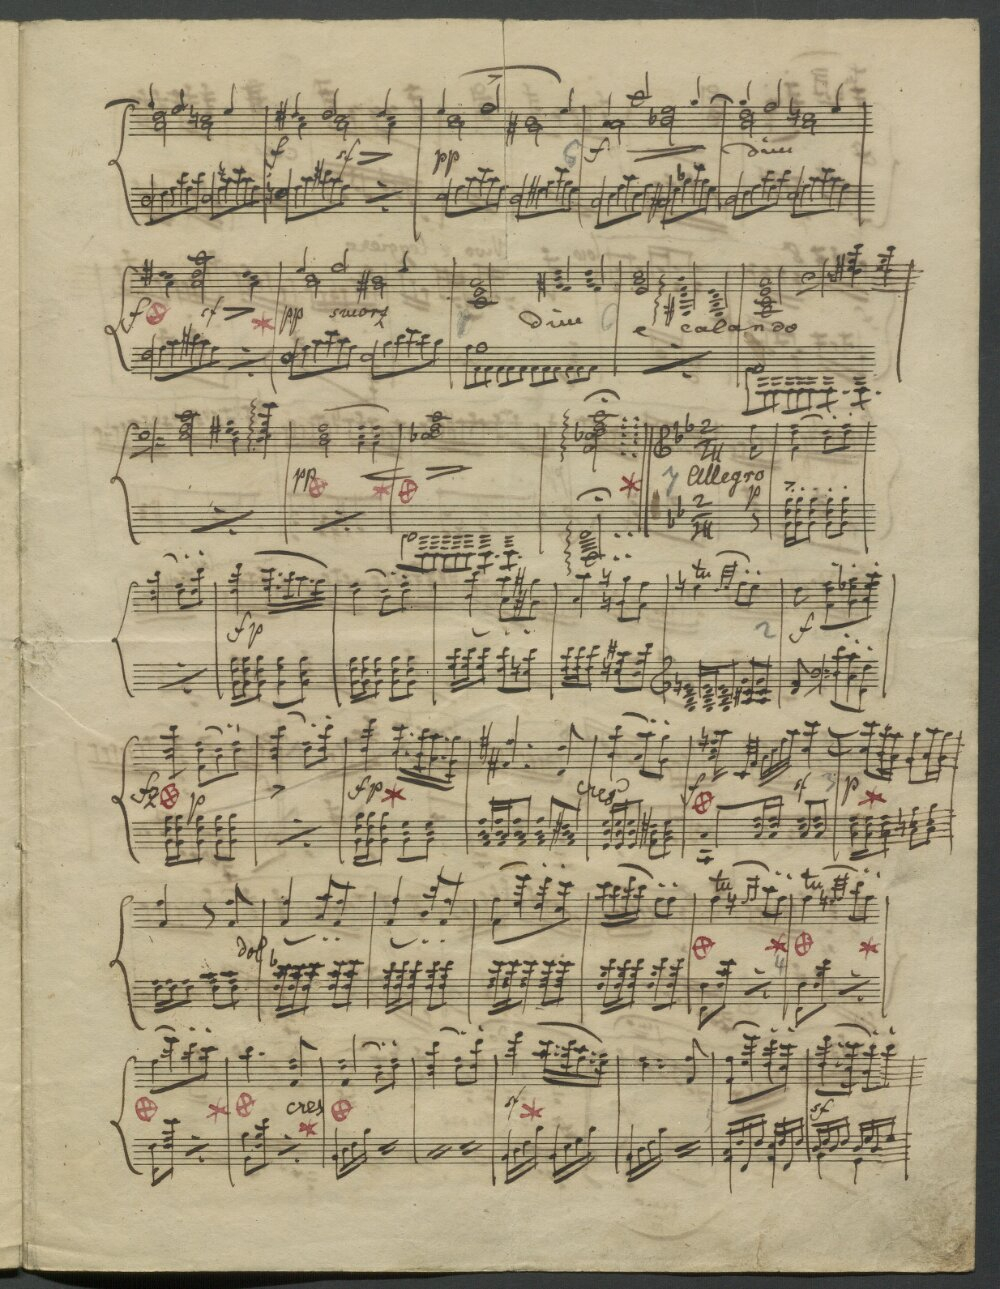 f sf pp 6 f dim
f sf pp smorz dim e calando
pp 7 Allegro p
2 2
4 4
fp tr 2 f
fz p fp cres f sf 3 p
dol tr tr 4
cres sf sf